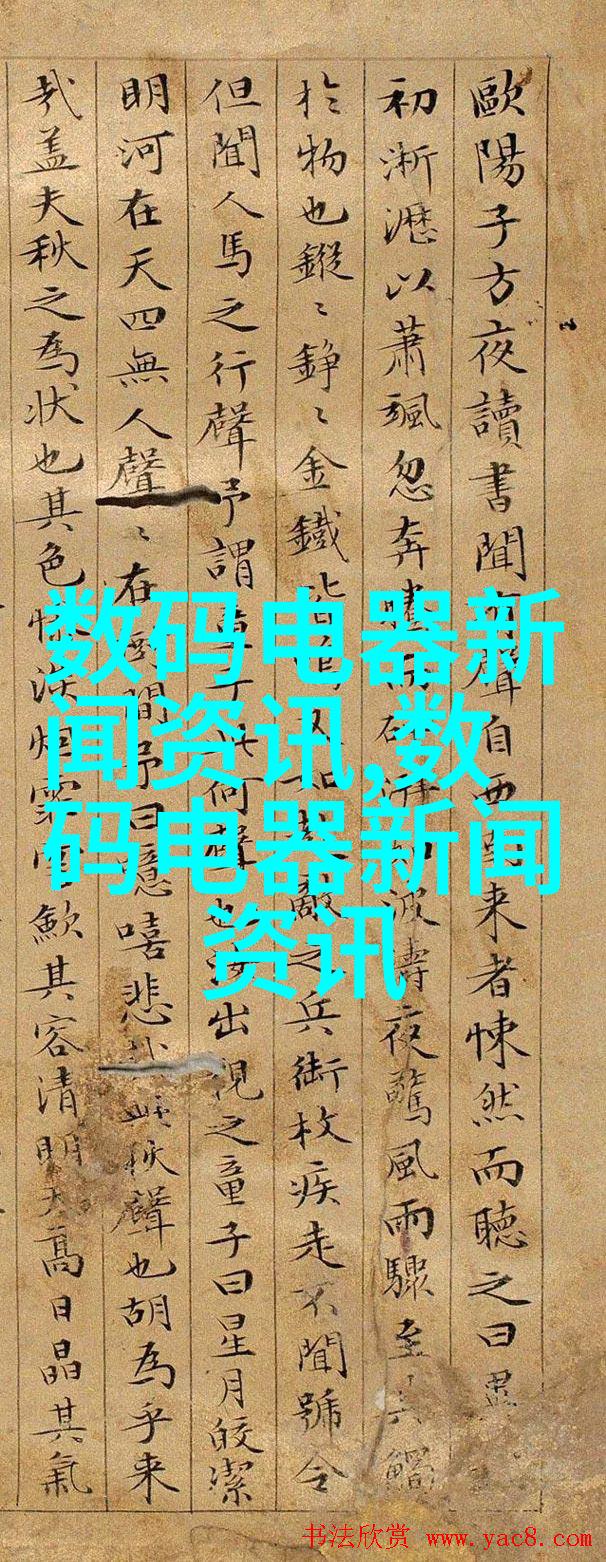 歐陽子方夜讀書聞有聲自西南來者悚然而聽之曰異
初淅瀝以蕭颯忽奔騰而砰湃如波濤夜驚風雨驟至其觸
於物也鏦〻錚〻金鐵皆鳴又如赴敵之兵銜枚疾走不聞號令
但聞人馬之行聲予謂童子此何聲也汝出視之童子曰星月皎潔
明河在天四無人聲〻在樹間予曰噫嘻悲哉此秋聲也胡為乎来
哉蓋夫秋之為狀也其色慘淡烟霏雲歛其容清明天高日晶其氣
数码电器新
闻资讯,数
码电器新闻
资讯
书法欣赏 www.yac8.com